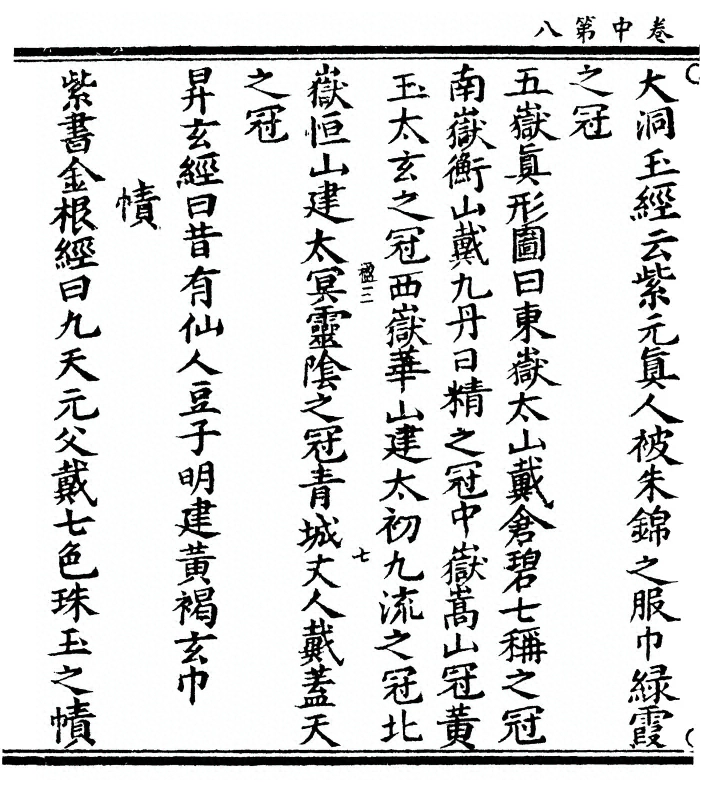 卷中第八
大洞玉經云紫元眞人被朱錦之服巾緑霞
之冠
五嶽眞形圖曰東嶽太山戴倉碧七稱之冠
南嶽衡山戴九丹日精之冠中嶽嵩山冠黄
玉太玄之冠西嶽華山建太初九流之冠北
三 七
嶽恒山建太冥靈陰之冠青城丈人戴蓋天
之冠
昇玄經曰昔有仙人豆子明建黄褐玄巾
幘
紫書金根經曰九天元父戴七色珠玉之幘